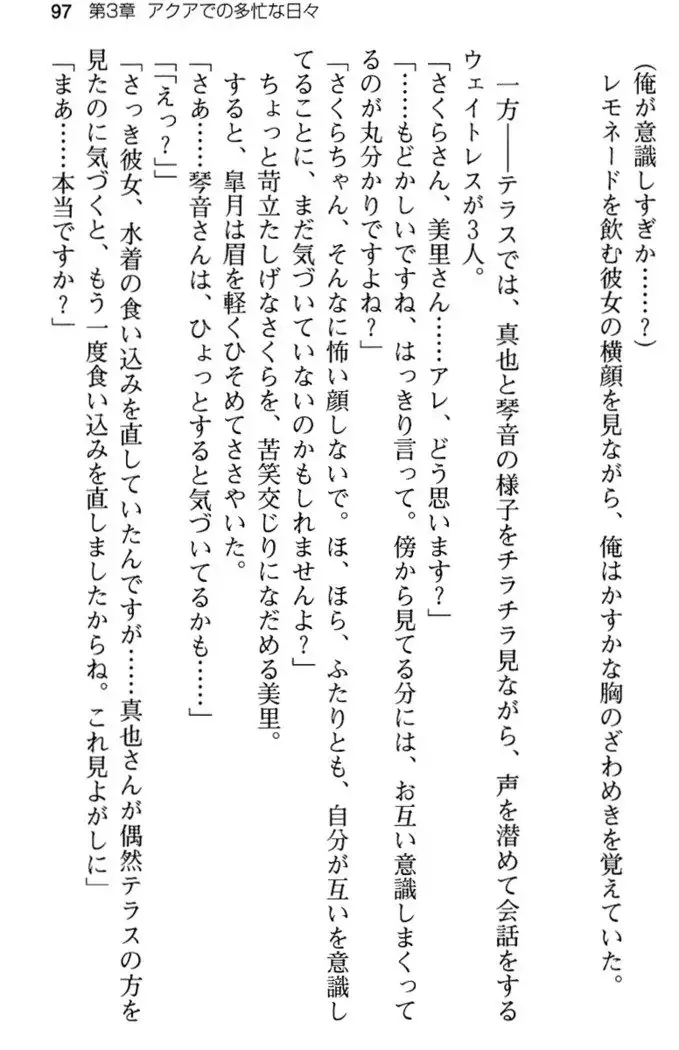 97 第3章 アクアでの多忙な日々
(俺が意識しすぎか……?)
レモネードを飲む彼女の横顔を見ながら、俺はかすかな胸のざわめきを覚えていた。
一方――テラスでは、真也と琴音の様子をチラチラ見ながら、声を潜めて会話をする
ウェイトレスが3人。
「さくらさん、美里さん……アレ、どう思います?」
「……もどかしいですね、はっきり言って。傍から見てる分には、お互い意識しまくって
るのが丸分かりですよね?」
「さくらちゃん、そんなに怖い顔しないで。ほ、ほら、ふたりとも、自分が互いを意識し
てることに、まだ気づいていないのかもしれませんよ?」
ちょっと苛立たしげなさくらを、苦笑交じりになだめる美里。
すると、皐月は眉を軽くひそめてささやいた。
「さあ……琴音さんは、ひょっとすると気づいてるかも……」
「「えっ?」」
「さっき彼女、水着の食い込みを直していたんですが……真也さんが偶然テラスの方を
見たのに気づくと、もう一度食い込みを直しましたからね。これ見よがしに」
「まあ……本当ですか?」